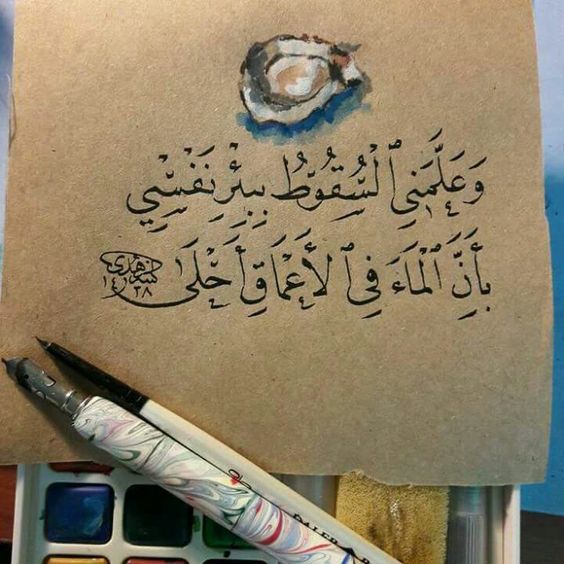 وَعَلَّمَنِي ٱلْسُّقُوْطُ بِبِئْرِ نَفْسِْي
بِأَنَّ ٱلْمَاءَ فِي ٱلأَعْمَاقِ أَحْلَى
١٤٣٨